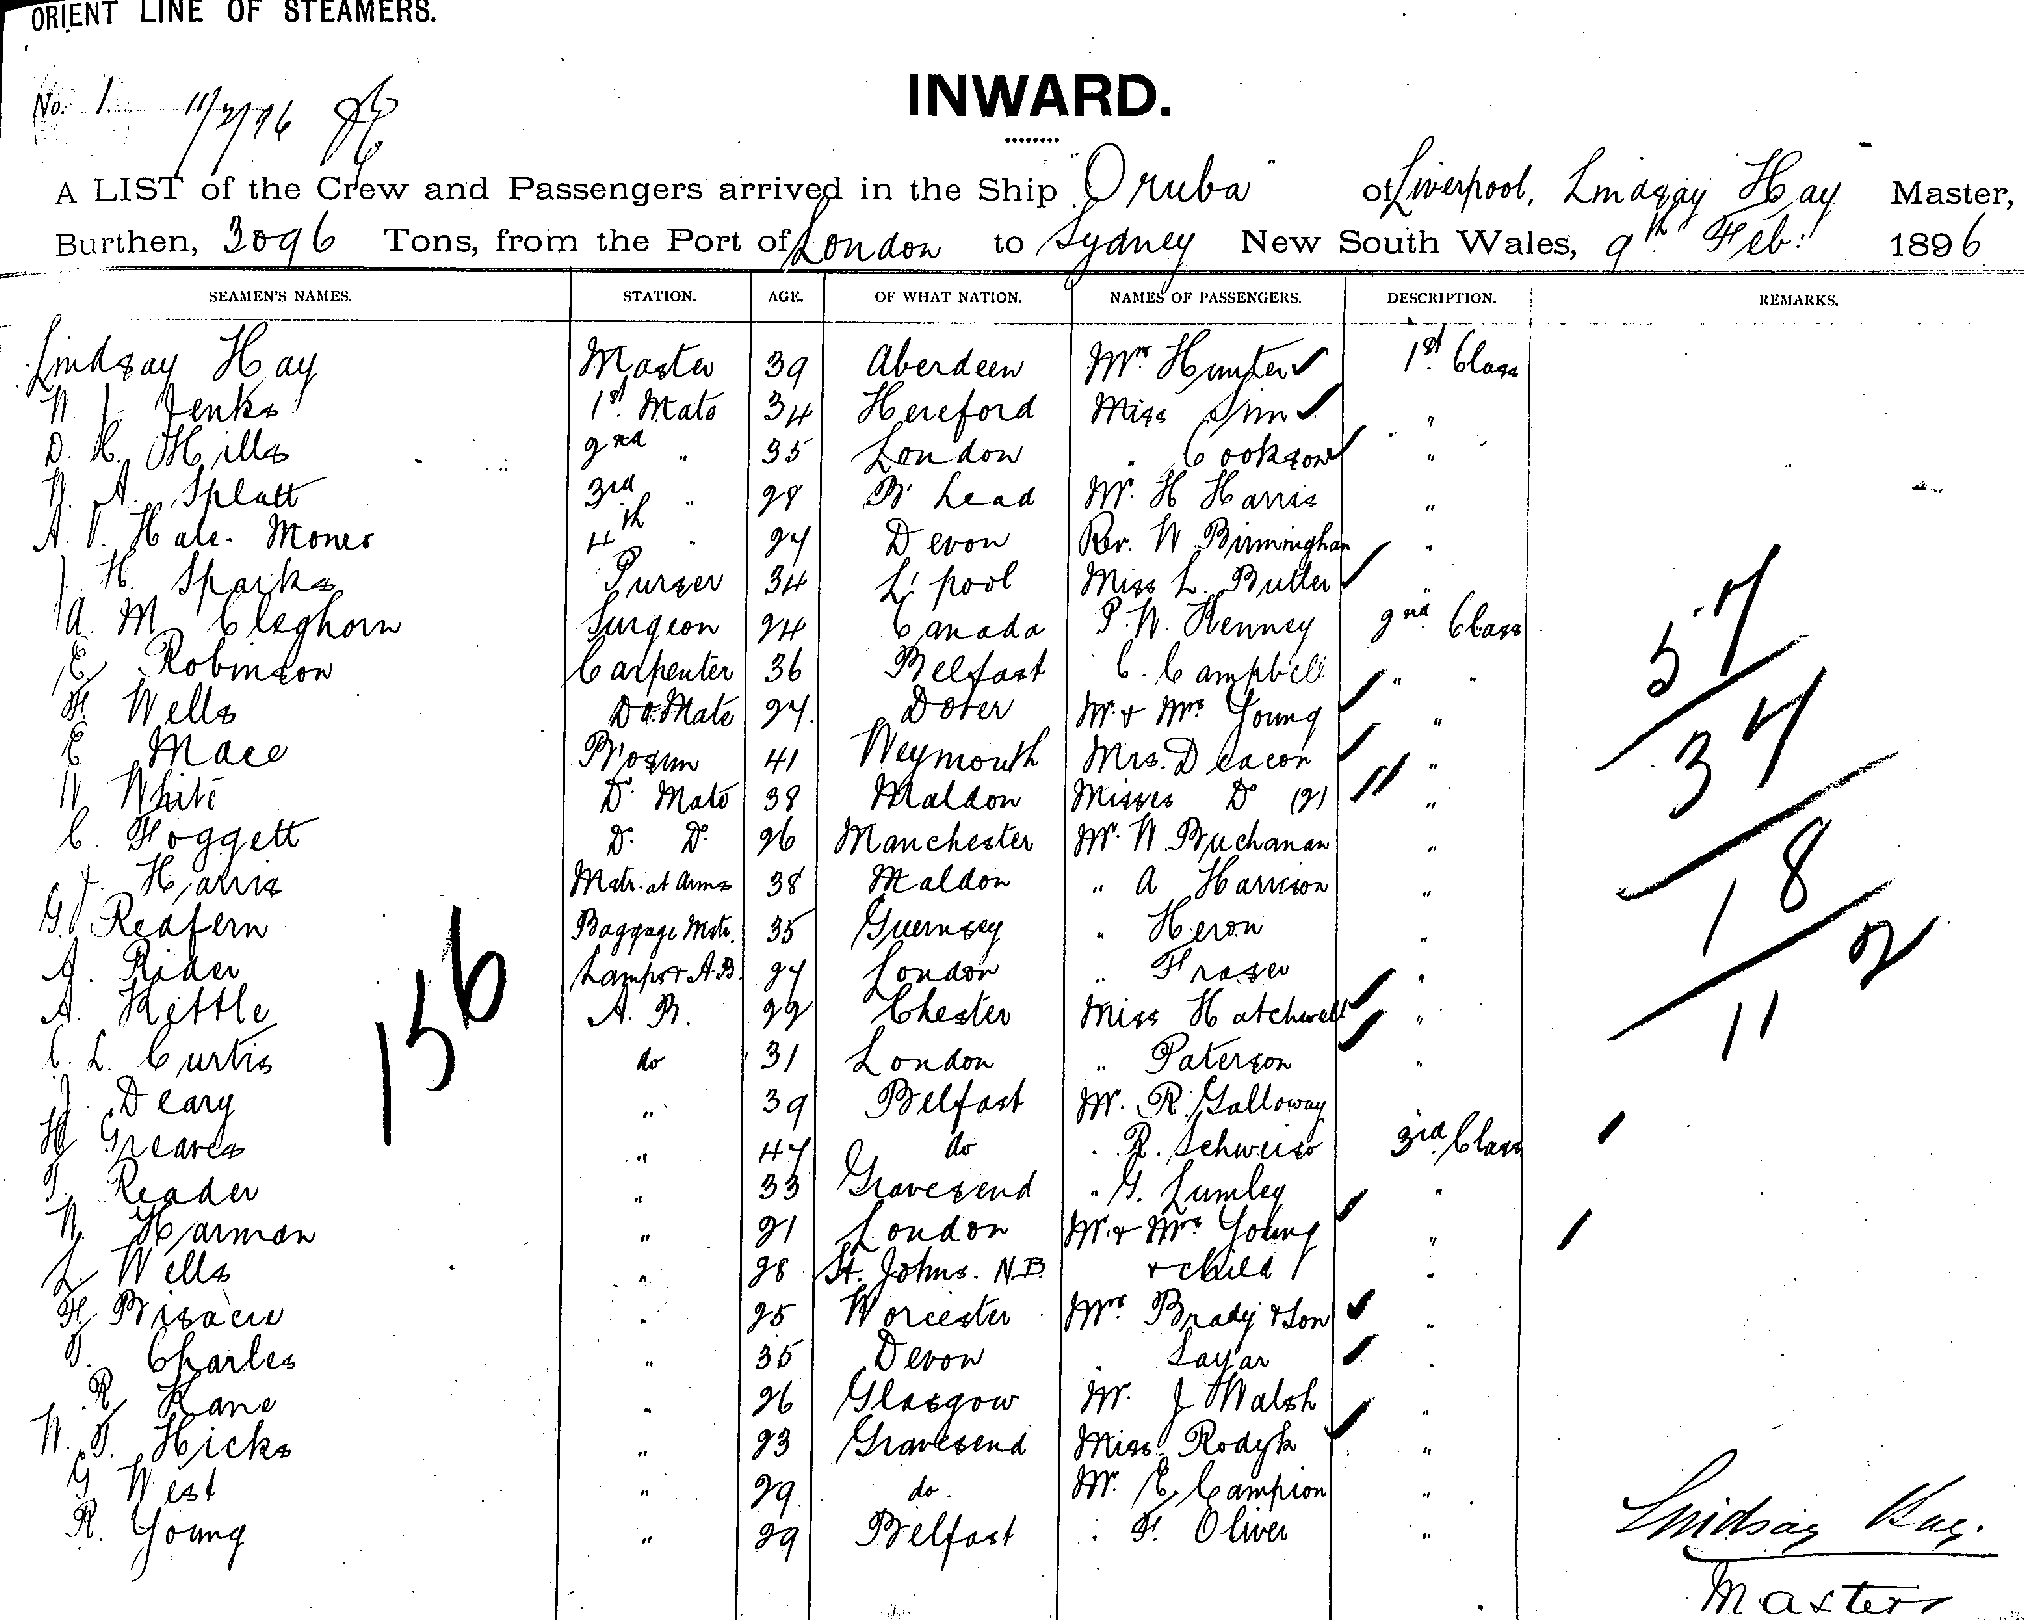 ORIENT LINE OF STEAMERS.
No. 1 11/2/96
INWARD.
A LIST of the Crew and Passengers arrived in the Ship "Oruba" of Liverpool, Lindsay Hay Master,
Burthen, 3096 Tons, from the Port of London to Sydney New South Wales, 9th Feb: 1896
SEAMEN'S NAMES. STATION. AGE. OF WHAT NATION. NAMES OF PASSENGERS. DESCRIPTION. REMARKS.
Lindsay Hay Master 39 Aberdeen Mrs Hunter ✓ 1st Class
W J Jenks 1st Mate 34 Hereford Miss Sim ✓ "
D. H. Mills 2nd " 35 London " Cookson ✓ "
W. A. Splatt 3rd " 28 B'Head Mr. H Harris "
A. Hale-Money 4th " 27 Devon Rev. W Birmingham "
J H Sparks Purser 34 L'pool Miss L. Butler ✓ "
A M Cleghorn Surgeon 24 Canada P. W. Kenney 2nd Class
E Robinson Carpenter 36 Belfast C. Campbell " "
H Wells Do. Mate 27. Dover Mr. & Mrs Young ✓ "
E Mace Bosun 41 Weymouth Mrs. Deacon ✓ "
W White Do Mate 38 Maldon Misses Do (2) "
C. Foggett Do. Do. 26 Manchester Mr. W Buchanan "
J. Harris Mstr. at Arms 38 Maldon " A Harrison "
G. Redfern Baggage Mstr. 35 Guernsey " Heron "
A. Rider Lamps & A.B. 27 London " Fraser "
A. Kettle A. B. 22 Chester Miss Hatchwell ✓ "
C. L. Curtis do 31 London " Paterson ✓ "
J. Deary " 39 Belfast Mr. R. Galloway
H Greaves " 47 do " R. Schweiso 3rd Class
T. Reader " 33 Gravesend " G. Lumley "
W Harman " 21 London Mr. & Mrs Young ✓ "
L Wells " 28 St. Johns. N.B. & child "
H " 25 Worcester Mrs Brady & Son ✓ "
T. Charles " 35 Devon " Sayar "
R Kane " 26 Glasgow Mr. J Walsh "
W. T. Hicks " 23 Gravesend Miss Rodyk ✓ "
G West " 29 do. Mr. E. Campion "
R. Young " 29 Belfast " F. Oliver "
156
57
34
18
2
11
Lindsay Hay.
Master